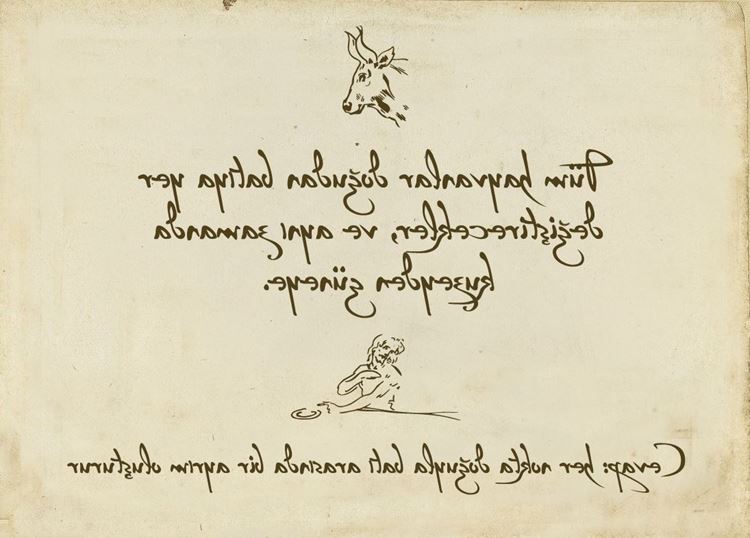 Tüm hayvanlar doğudan batıya yer
değiştirecekler, ve aynı zamanda
kuzeyden güneye.
Cevap: her nokta doğuyla batı arasında bir ayrım oluşturur